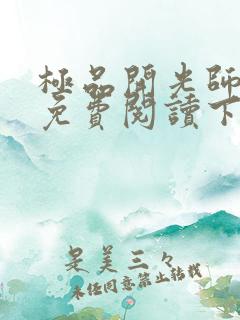 極品開光師
免費閱讀下
是美三々
未經同意禁止轉載